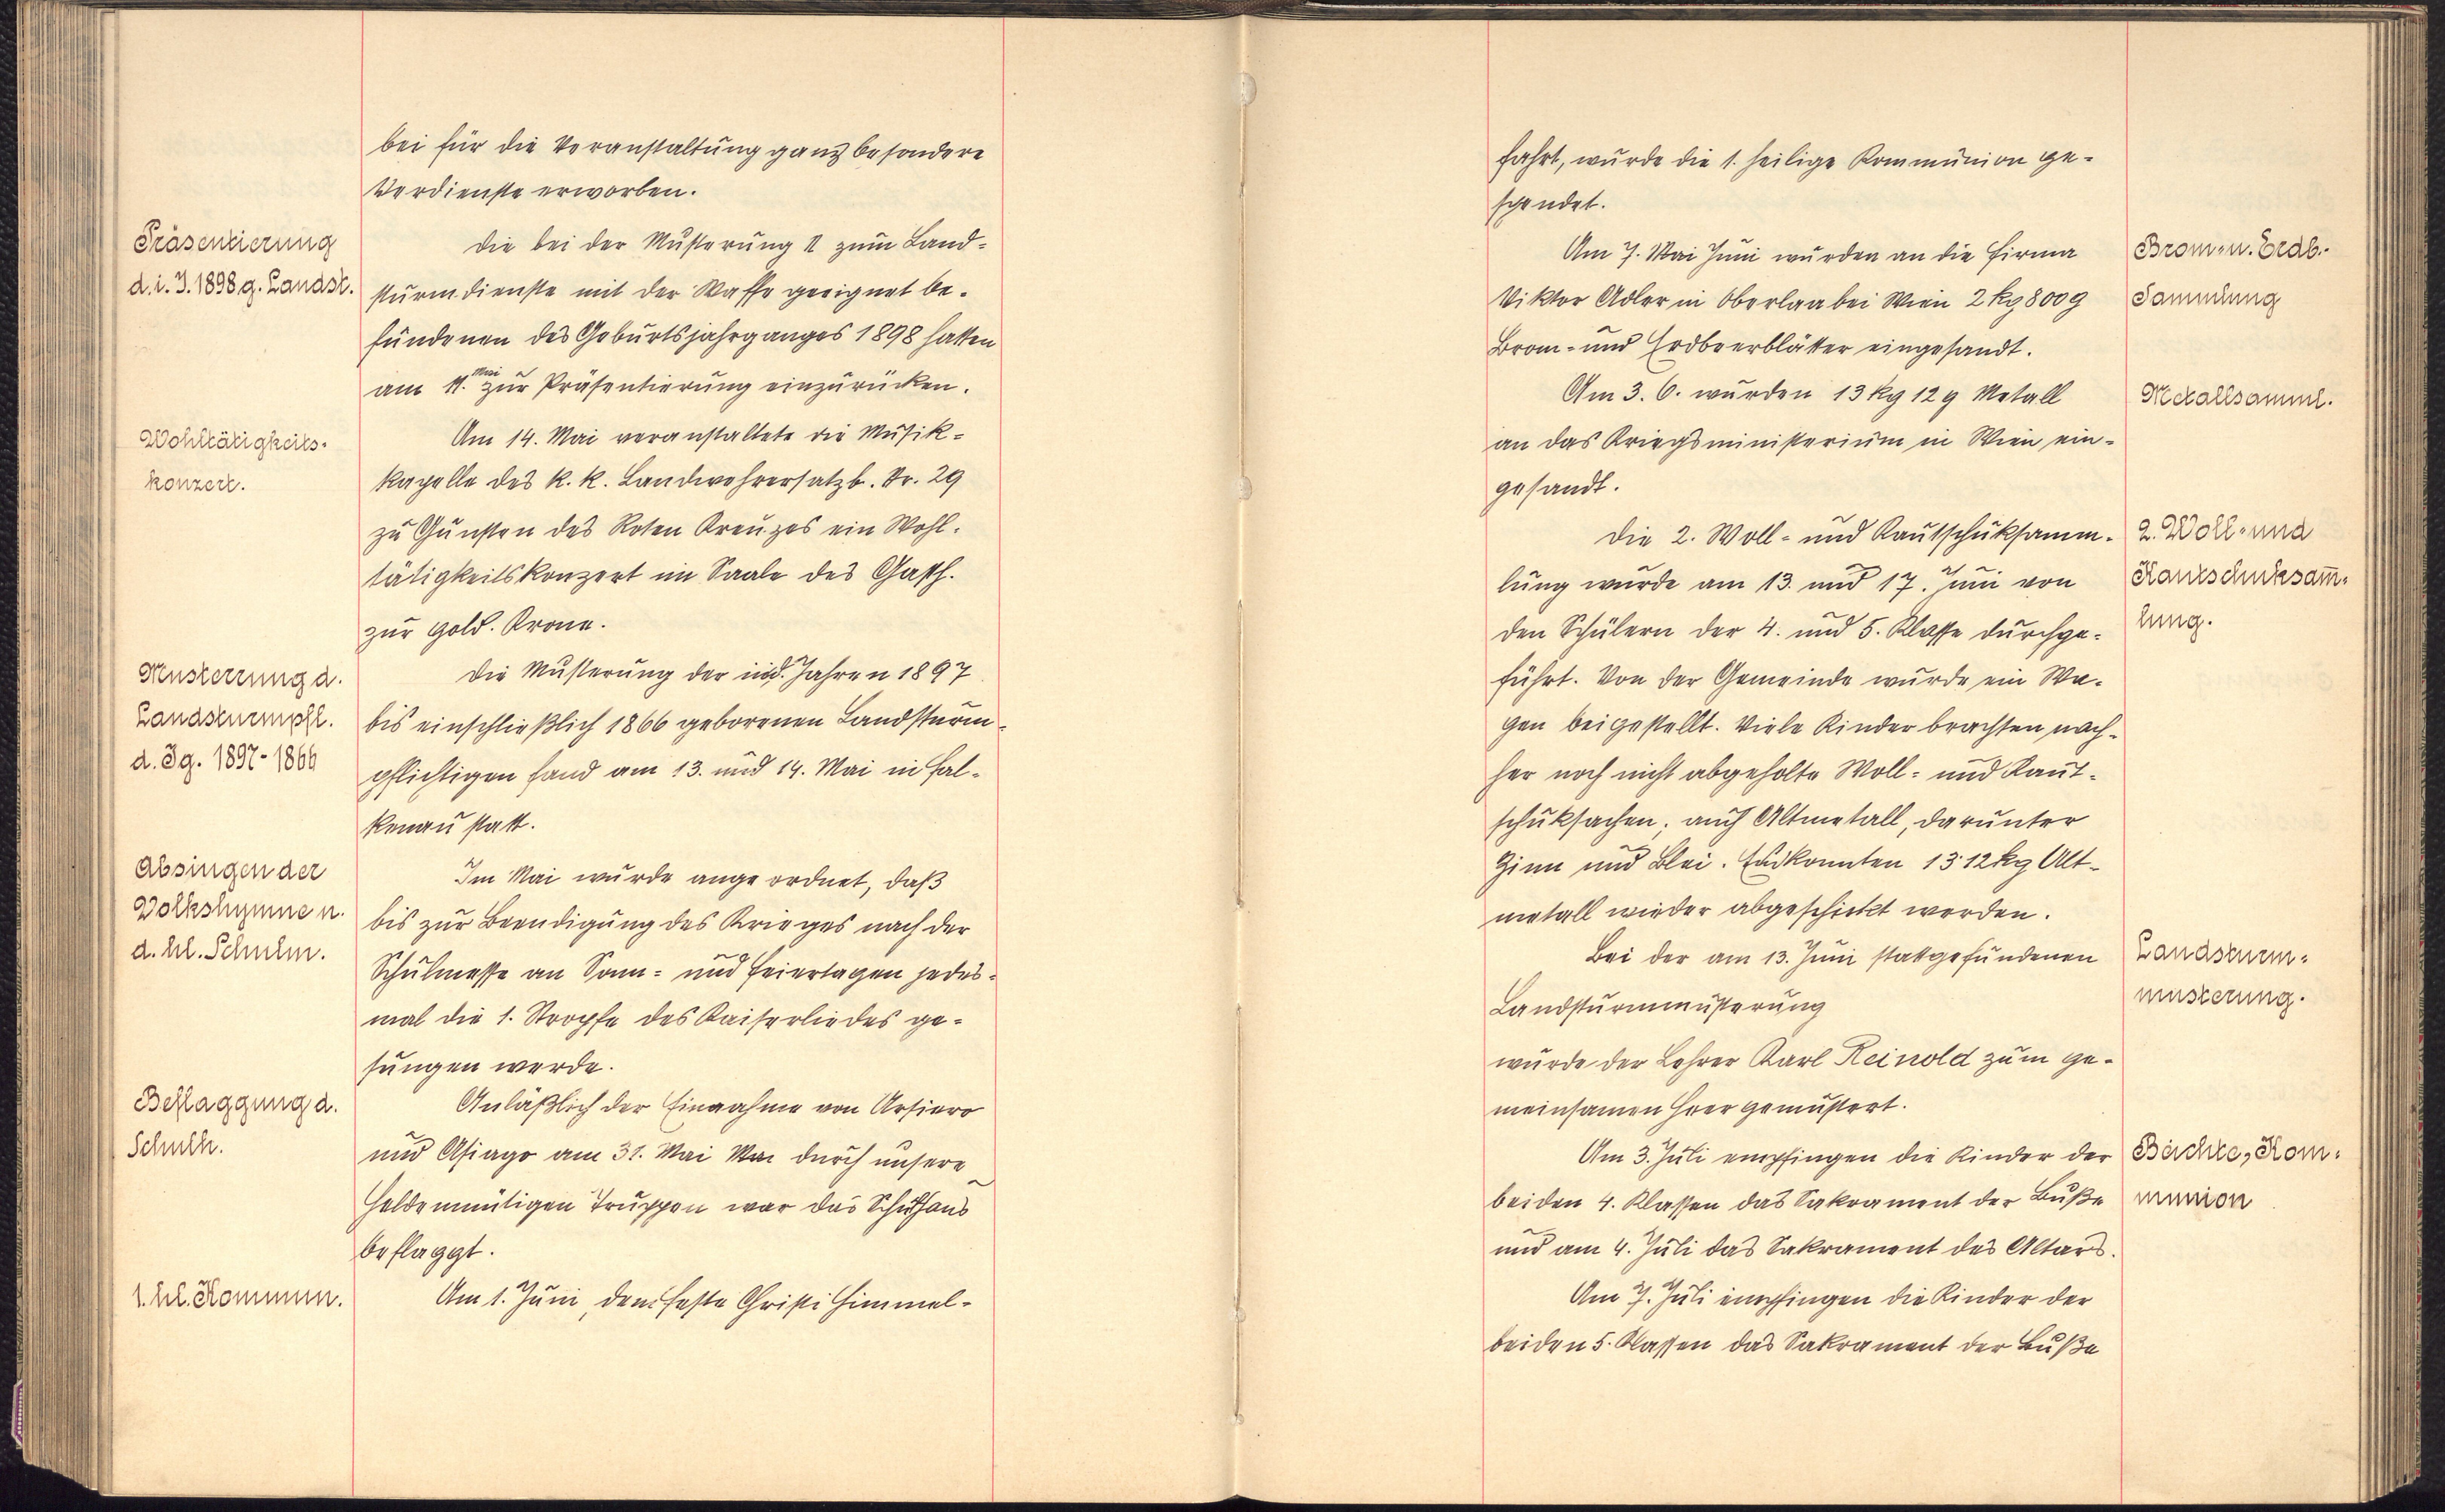 bei für die Veranstaltung ganz besondere
Verdienste erworben.
Präsentierung
d. i. J. 1898 g. Landst.
Die bei der Musterung II zum Land-
sturmdienste mit der Waffe geeignet be-
fundenen des Geburtsjahrganges 1898 hatten
am 11. Mai zur Präsentierung einzurücken.
Wohltätigkeits-
konzert.
Am 14. Mai veranstaltete die Musik-
kapelle des k. k. Landwehrersatzb. Nr. 29
zu Gunsten des Roten Kreuzes ein Wohl-
tätigkeitskonzert im Saale des Gasth.
zur gold. Krone.
Musterrung d.
Landsturmpfl.
d. Jg. 1897-1866
Die Musterung der in d. Jahren 1897
bis einschließlich 1866 geborenen Landsturm-
pflichtigen fand am 13. und 14. Mai in Fal-
kenau statt.
Absingen der
Volkshymne n.
d. hl. Schulm.
Im Mai wurde angeordnet, daß
bis zur Beendigung des Krieges nach der
Schulmesse an Sonn- und Feiertagen jedes-
mal die 1. Stropfe des Kaiserliedes ge-
sungen werde.
Beflaggung d.
Schulh.
Anläßlich der Einnahme von Arsiero
und Asiago am 31. Mai durch unsere
heldenmütigen Truppen war das Schulhaus
beflaggt.
1. hl. Kommun.
Am 1. Juni, dem Feste Christi Himmel-
fahrt, wurde die 1. heilige Kommunion ge-
spendet.
Brom- u. Erdb.-
Sammlung
Am 7. Mai Juni wurden an die Firma
Viktor Adler in Oberlaa bei Wien 2 kg 800 g
Brom- und Erdbeerblätter eingesandt.
Metallsamml.
Am 3. 6. wurden 13 kg 12 g Metall
an das Kriegsministerium in Wien ein-
gesandt.
2. Woll- und
Kautschuksam̅-
lung.
Die 2. Woll- und Kautschuksamm-
lung wurde am 13. und 17. Juni von
den Schülern der 4. und 5. Klasse durchge-
führt. Von der Gemeinde wurde ein Wa-
gen beigestellt. Viele Kinder brachten nach-
her noch nicht abgeholte Woll- und Kaut-
schuksachen, auch Altmetall, darunter
Zinn und Blei. konnten 13·12 kg Alt-
metall wieder abgeschickt werden.
Landsturm-
musterung.
Bei der am 13. Juni stattgefundenen
Landsturmmusterung
wurde der Lehrer Karl Reinold zum ge-
meinsamen Heer gemustert.
Beichte, Kom-
munion
Am 3. Juli empfingen die Kinder der
beiden 4. Klassen das Sakrament der Buße
und am 4. Juli das Sakrament des Altars.
Am 7. Juli empfingen die Kinder der
beiden 5. Klassen das Sakrament der Buße